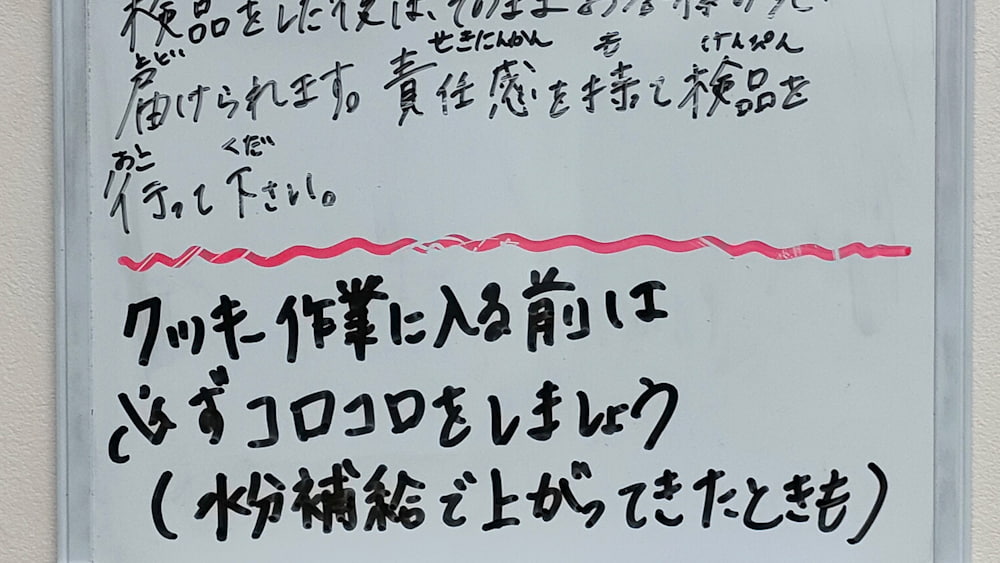 検品をした後は、そのままお客様の元へ
とど せきにんかん も けんぴん
届けられます。責任感を持って検品を
おこ くだ
行って下さい。
クッキー作業に入る前は
必ずコロコロをしましょう
(水分補給で上がってきたときも)